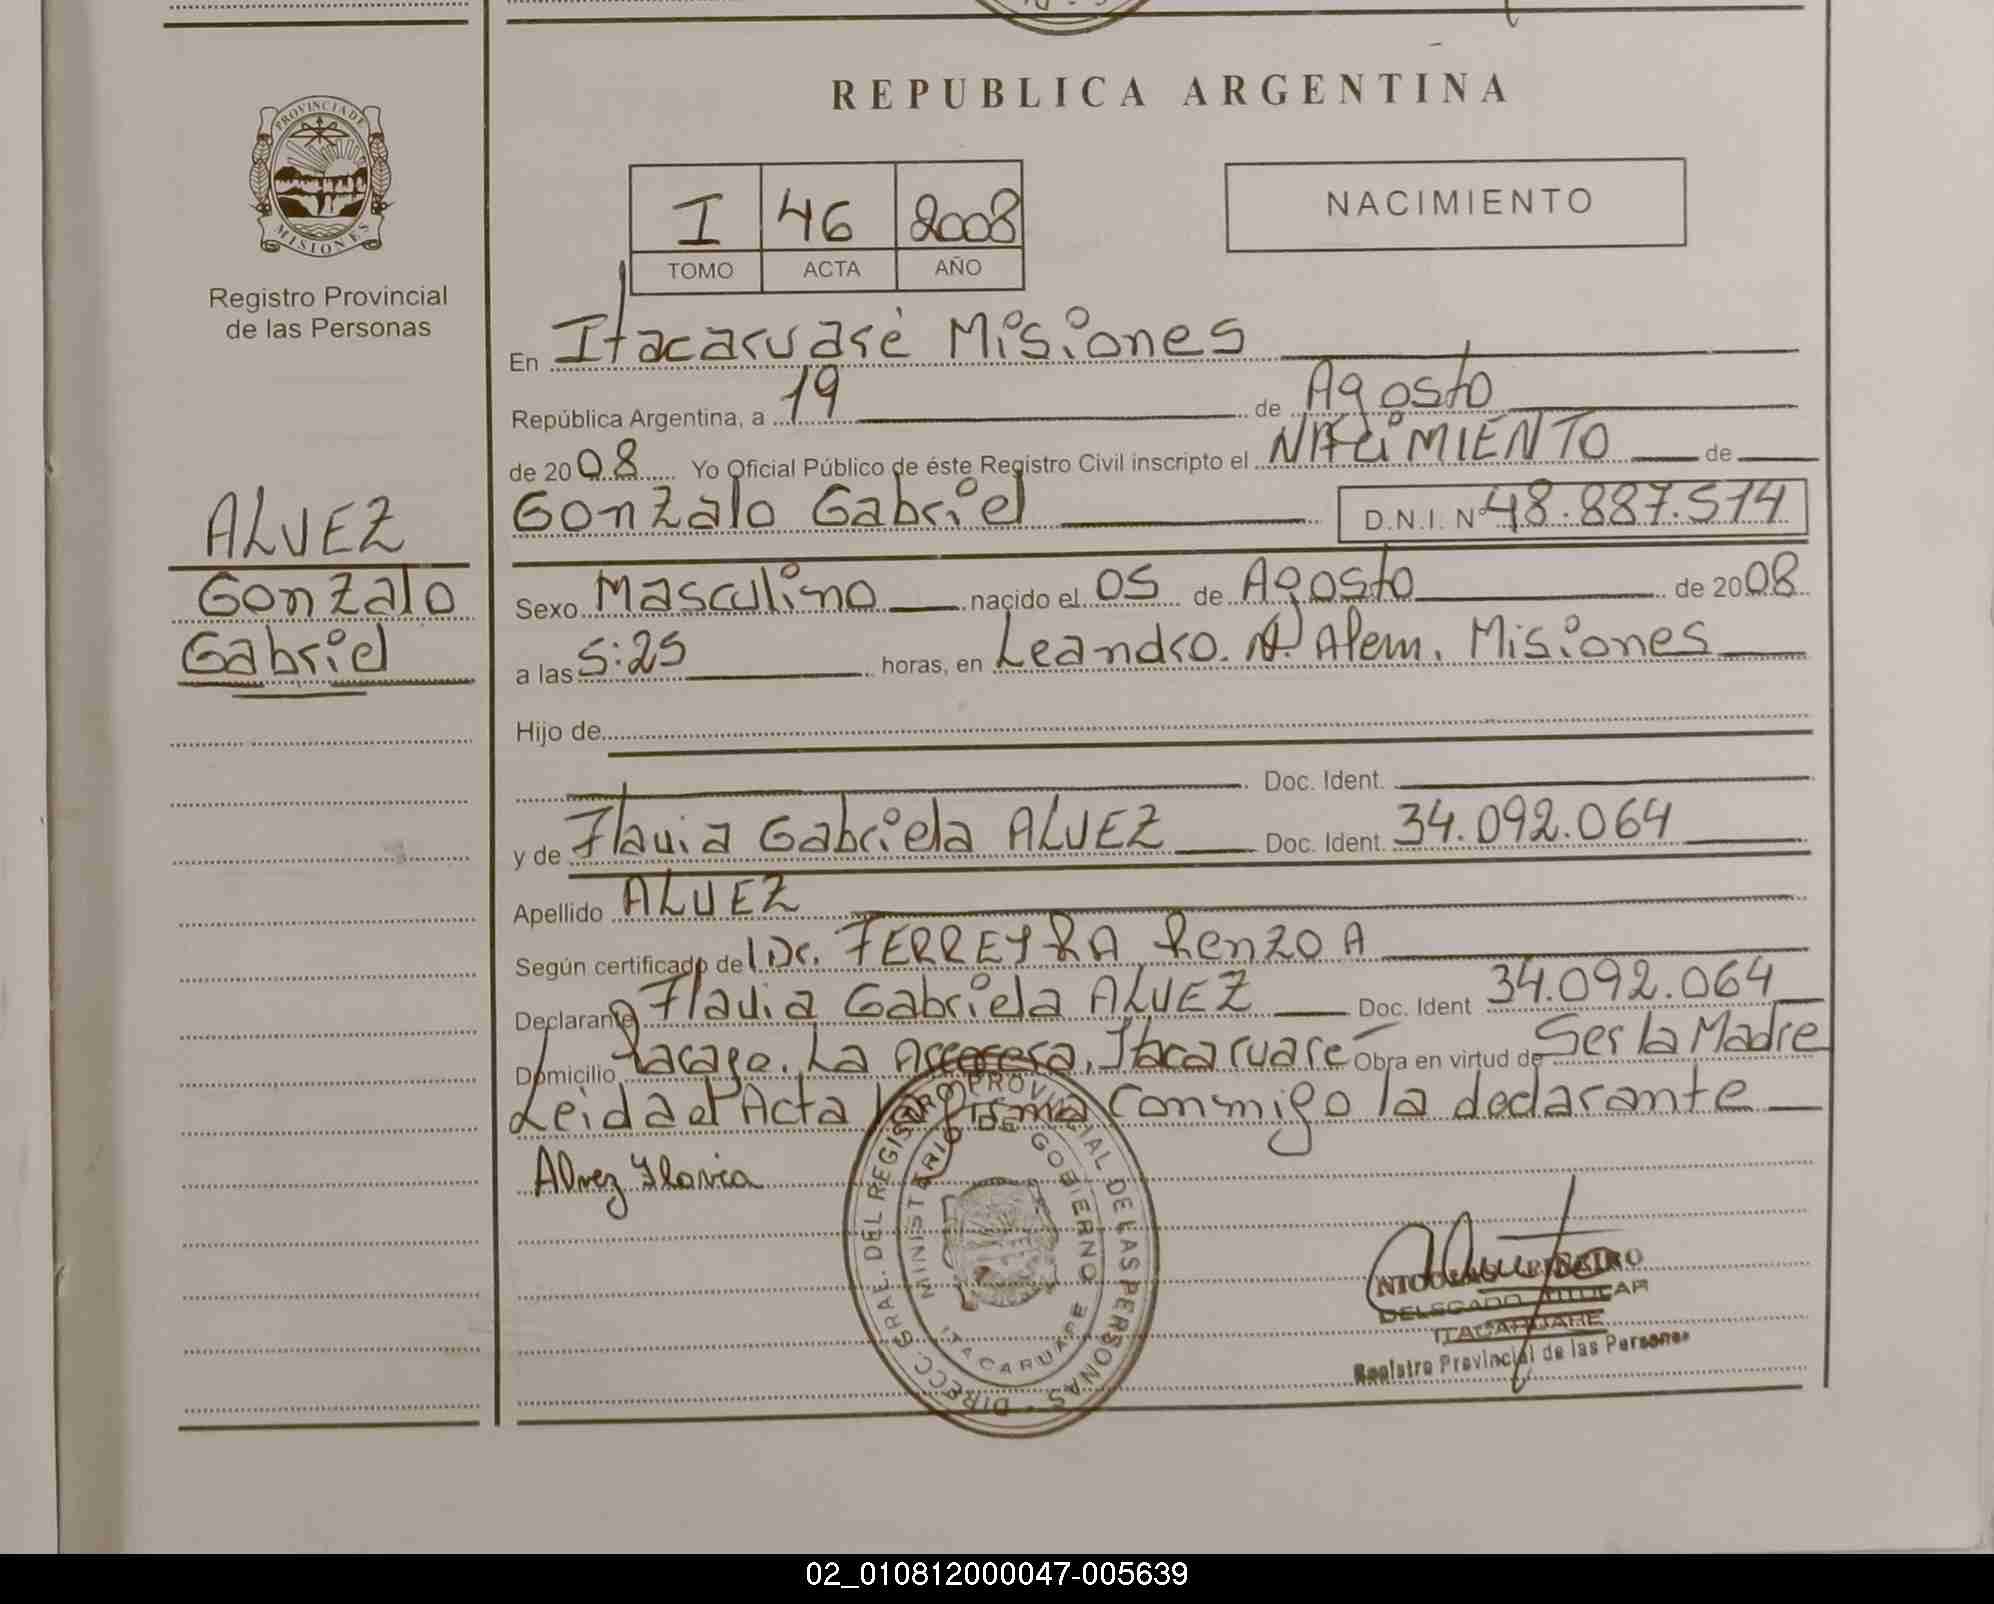 REPUBLICA ARGENTINA
PROVINCIA DE MISIONES
Registro Provincial
de las Personas
I 46 2008
TOMO ACTA AÑO
NACIMIENTO
ALVEZ
Gonzalo
Gabriel
En Itacaruaré Misiones
República Argentina, a 19 de Agosto
de 2008 Yo Oficial Público de éste Registro Civil inscripto el NACIMIENTO de
Gonzalo Gabriel D.N.I. Nº 48.887.574
Sexo Masculino nacido el 05 de Agosto de 2008
a las 5:25 horas, en Leandro. N. Alem. Misiones
Hijo de
Doc. Ident.
y de Flavia Gabriela ALVEZ Doc. Ident. 34.092.064
Apellido ALVEZ
Según certificado del Dr. FERREYRA Renzo A
Declarante Flavia Gabriela ALVEZ Doc. Ident 34.092.064
Domicilio La Itacaruaré Obra en virtud de Ser la Madre
Leida el Acta la firma conmigo la declarante
Alvez Flavia
DIRECC. GRAL. DEL REGISTRO PROVINCIAL DE LAS PERSONAS
MINISTERIO DE GOBIERNO
ITACARUARE
DELEGADO TITULAR
ITACARUARE
Registro Provincial de las Personas
02_010812000047-005639